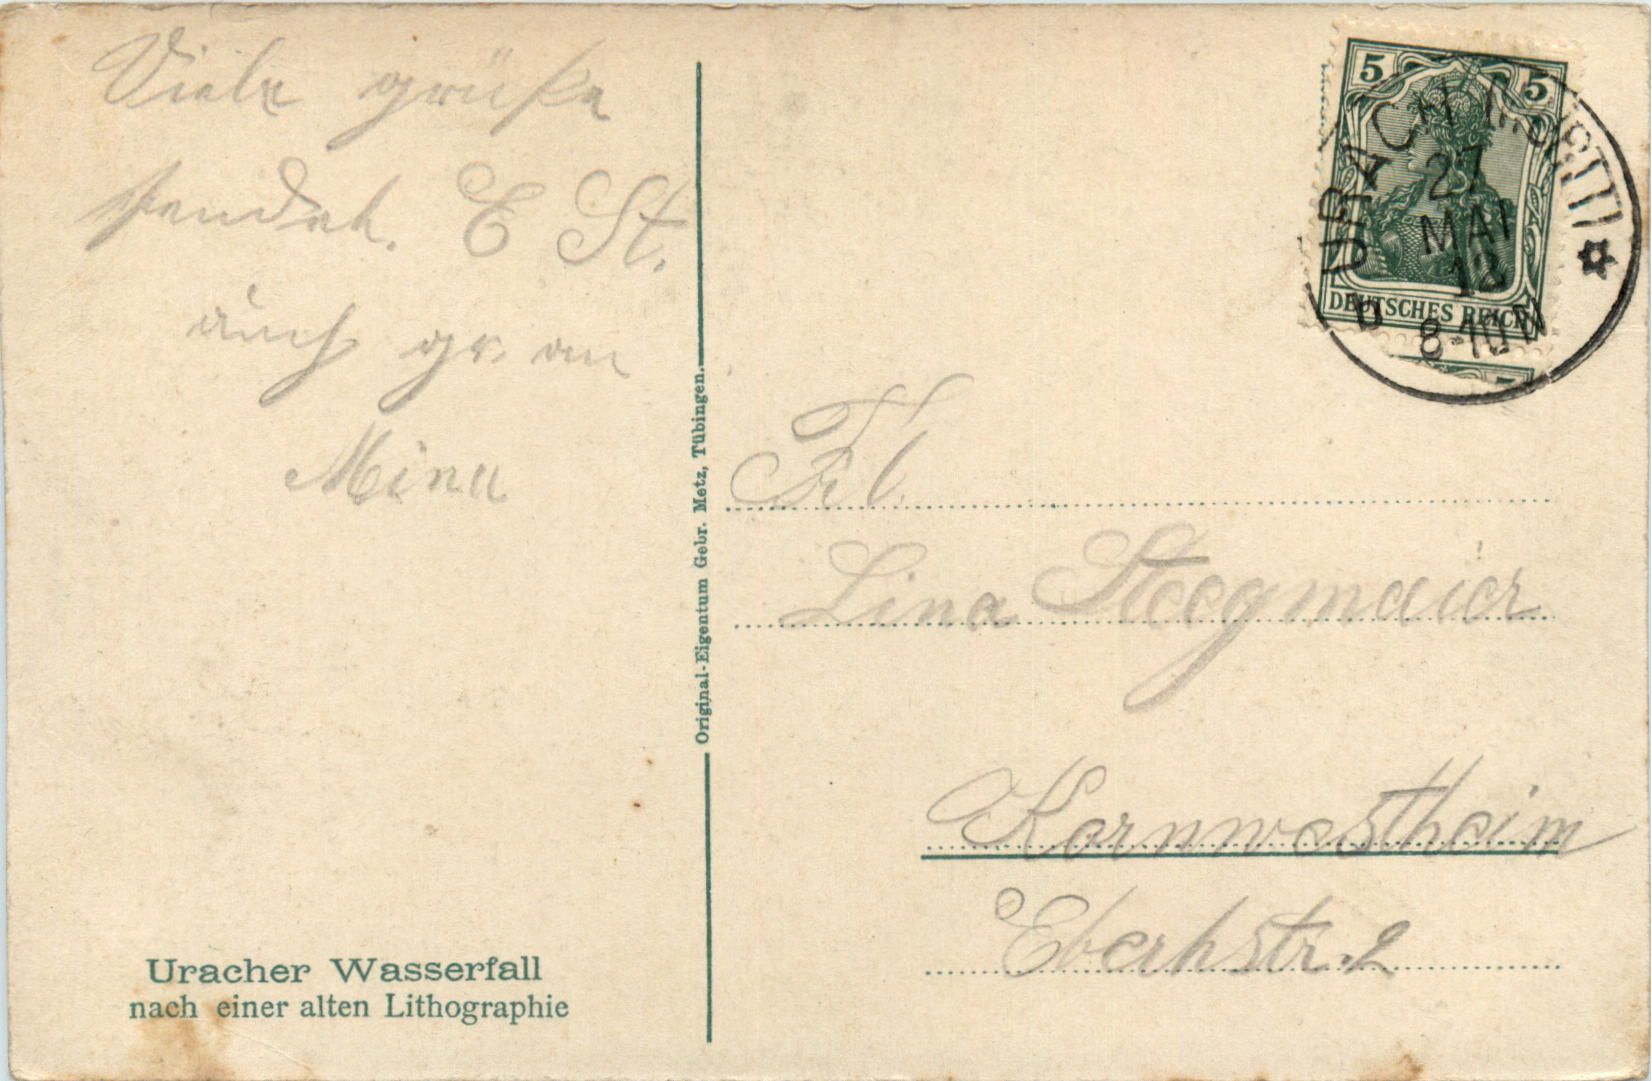 Viele grüße
sendet. E St.
auch gr. an
Mina
Original-Eigentum Gebr. Metz, Tübingen.
5 5
DEUTSCHES REICH
URACH (WÜRTT)
27
MAI
8-10 N
Frl.
Lina Steegmaier
Kornwestheim
Eberhstr. 2
Uracher Wasserfall
nach einer alten Lithographie